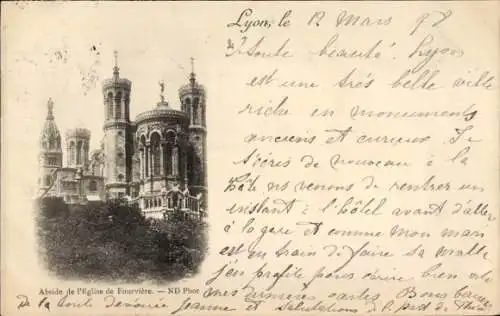 Lyon, le 12 Mars 98
Toute beauté. Lyon
est une très belle ville
riche en monuments
anciens et curieux. Je
t'écris de nouveau à la
hâte ns venons de rentrer un
instant à l'hôtel avant d'aller
à la gare et comme mon mari
est en train de faire sa malle
j'en profite pour écrire bien vite
mes dernières cartes Bons baisers
de la toute dévouée Jeanne et salutations de P.
Abside de l'Eglise de Fourvière. — ND Phot